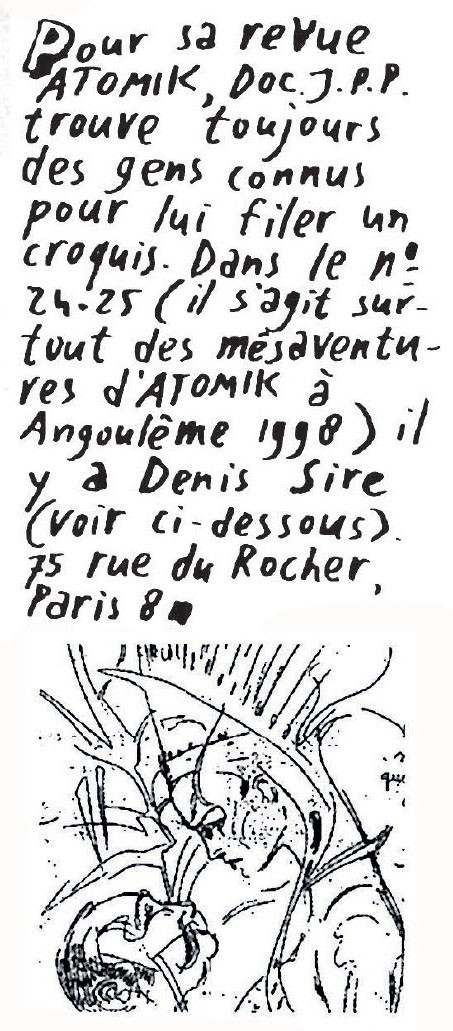 Pour sa reVue
ATOMIK, Doc.J.P.P.
trouve toujours
des gens connus
pour lui filer un
croquis. Dans le nº
24-25 (il s'agit sur-
tout des mésaventu-
res d'ATOMIK à
Angoulême 1998) il
y a Denis Sire
(voir ci-dessous).
75 rue du Rocher,
Paris 8